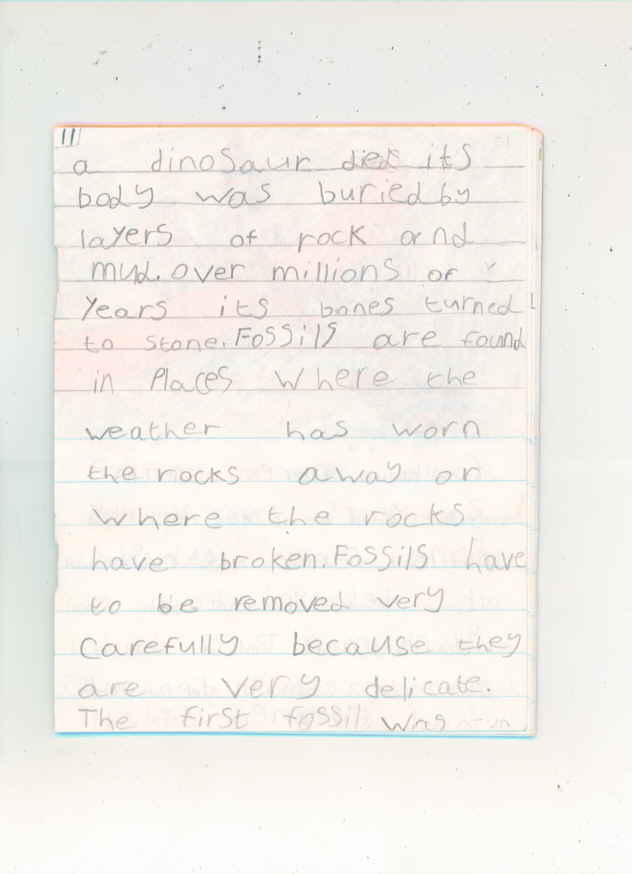 11
a dinosaur died its
body was buried by
layers of rock and
mud. over millions of
years its bones turned
to stone. Fossils are found
in Places Where the
weather has worn
the rocks away or
where the rocks
have broken. Fossils have
to be removed very
carefully because they
are very delicate.
The first fossil was